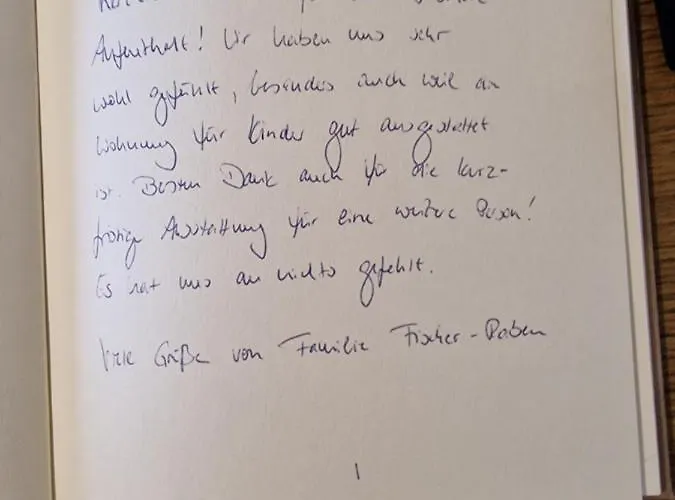 Aufenthalt! Wir haben uns sehr
wohl gefühlt, besonders auch weil die
Wohnung für Kinder gut ausgestattet
ist. Besten Dank auch für die kurz-
fristige Ausstattung für eine weitere Person!
Es hat uns an nichts gefehlt.
Viele Grüße von Familie Fischer-Raben